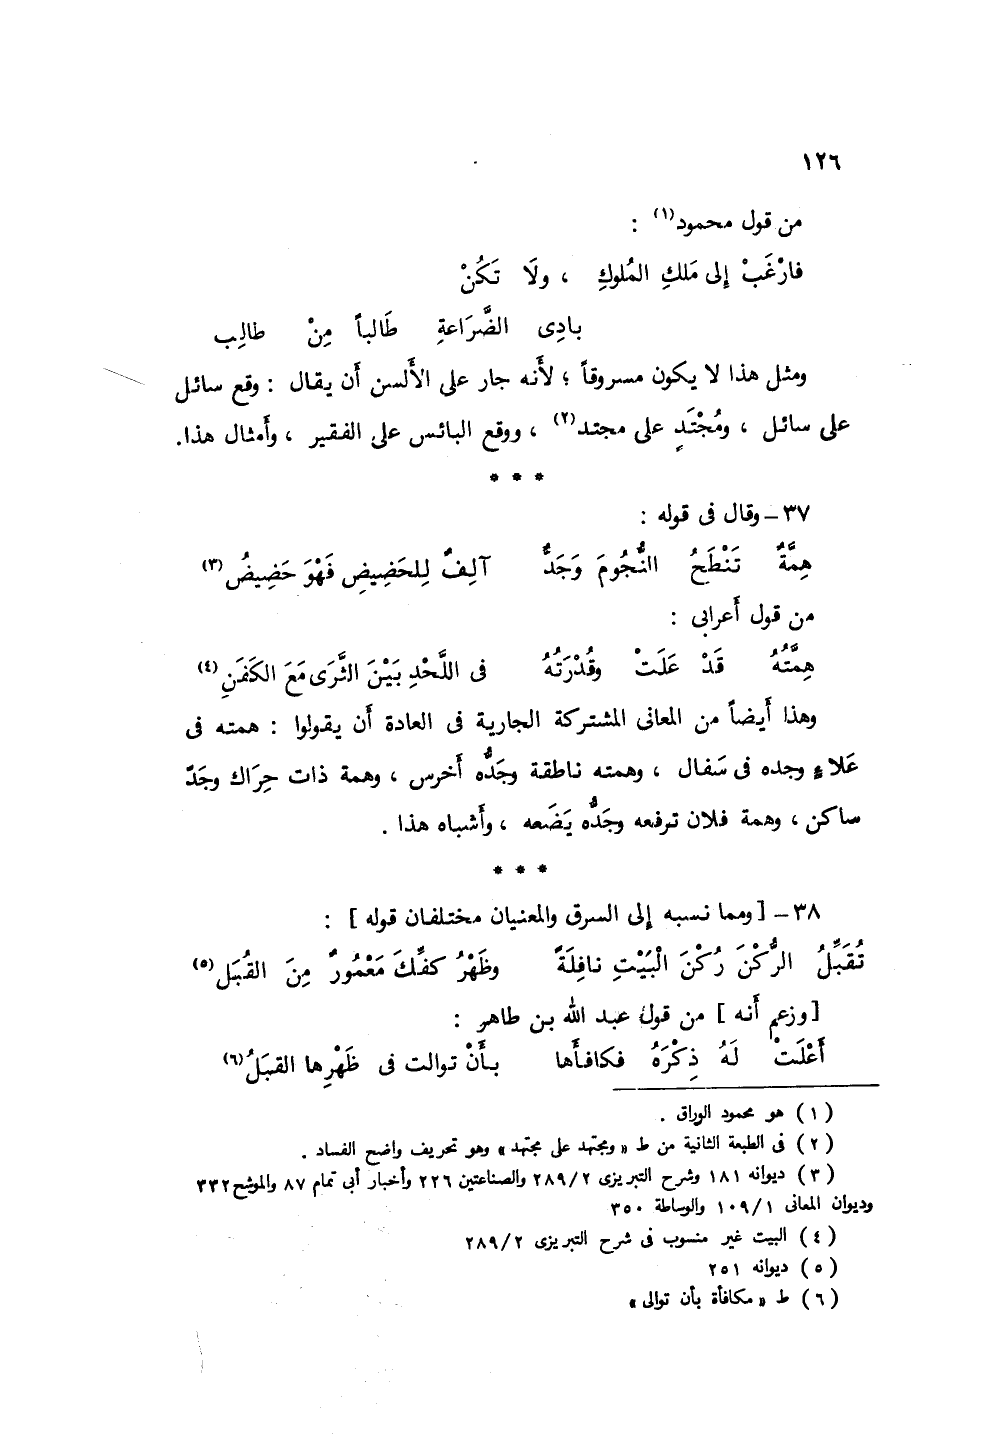 ١٢٦
من قول محمود(١) :
فارْغَبْ إلى مَلكِ المُلوكِ ، ولَا تَكُنْ
بادِى الضَّرَاعةِ طَالباً مِنْ طالِب
ومثل هذا لا يكون مسروقاً ؛ لأَنه جار على الأَلسن أَن يقال : وقع سائل
على سائل ، ومُجْتَدٍ على مجتد(٢) ، ووقع البائس على الفقير ، وأَمثال هذا.
* * *
٣٧ – وقال فى قوله :
هِمَّةٌ تَنْطَحُ النُّجُومَ وَجَدٌّ آلِفٌ لِلحَضِيضِ فَهْوَ حَضِيضُ(٣)
من قول أَعرابى :
هِمَّتُهُ قَدْ عَلَتْ وقُدْرَتُهُ فى اللَّحْدِ بَيْنَ الثَّرَى مَعَ الكَفَنِ(٤)
وهذا أَيضاً من المعانى المشتركة الجارية فى العادة أَن يقولوا : همته فى
عَلاءٍ وجده فى سَفال ، وهمته ناطقة وجَدُّه أَخرس ، وهمة ذات حِرَاك وجَدّ
ساكن ، وهمة فلان ترفعه وجَدُّه يَضَعه ، وأَشباه هذا .
* * *
٣٨ – [ ومما نسبه إلى السرق والمعنيان مختلفان قوله ] :
تُقَبِّلُ الرُّكْنَ رُكْنَ الْبَيْتِ نافِلَةً وظَهْرُ كفِّكَ مَعْمُورٌ مِنَ القُبَلِ(٥)
[ وزعم أَنه ] من قول عبد الله بن طاهر :
أَعْلَتْ لَهُ ذِكْرَهُ فكافأَها بأَنْ توالت فى ظَهْرِها القبَلُ(٦)
(١) هو محمود الوراق .
(٢) فى الطبعة الثانية من ط «ومجتهد على مجتهد» وهو تحريف واضح الفساد .
(٣) ديوانه ١٨١ وشرح التبريزى ٢/‏٢٨٩ والصناعتين ٢٢٦ وأخبار أبى تمام ٨٧ والموشح ٣٣٢
وديوان المعانى ١/‏١٠٩ والوساطة ٣٥٠
(٤) البيت غير منسوب فى شرح التبريزى ٢/‏٢٨٩
(٥) ديوانه ٢٥١
(٦) ط «مكافأة بأن توالى»